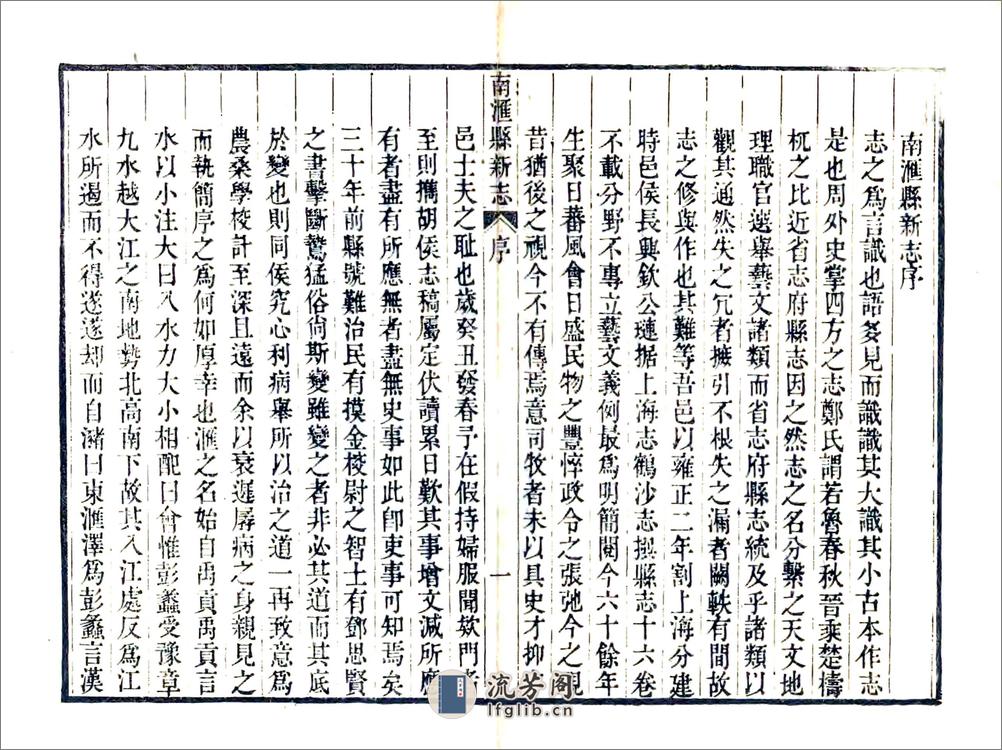 南滙縣新志序
志之爲言識也語多見而識識其大識其小古本作志
是也周外史掌四方之志鄭氏謂若魯春秋晉乘楚檮
杌之比近省志府縣志因之然志之名分繫之天文地
理職官選舉藝文諸類而省志府縣志統及乎諸類以
觀其通然失之冗者摭引不根失之漏者闕軼有間故
志之修與作也其難等吾邑以雍正二年割上海分建
時邑侯長興欽公璉据上海志鶴沙志撰縣志十六卷
不載分野不專立藝文義例最爲明簡閱今六十餘年
生聚日蕃風會日盛民物之豐悴政令之張弛今之視
昔猶後之視今不有傳焉意司牧者未以具史才抑
南滙縣新志
序
一
邑士夫之耻也歲癸丑發春予在假持婦服聞欸門者
至則攜胡侯志稿屬定伏讀累日歎其事增文減所應
有者盡有所應無者盡無史事如此卽吏事可知焉矣
三十年前縣號難治民有摸金校尉之智士有鄧思賢
之書擊斷鷙猛俗尙斯變雖變之者非必其道而其底
於變也則同侯究心利病舉所以治之道一再致意爲
農桑學校計至深且遠而余以衰遲孱病之身親見之
而執簡序之爲何如厚幸也滙之名始自禹貢禹貢言
水以小注大曰入水力大小相配曰會惟彭蠡受豫章
九水越大江之南地勢北高南下故其入江處反爲江
水所遏而不得遂遂却而自瀦曰東滙澤爲彭蠡言漢
流芳阁
lfglib.cn